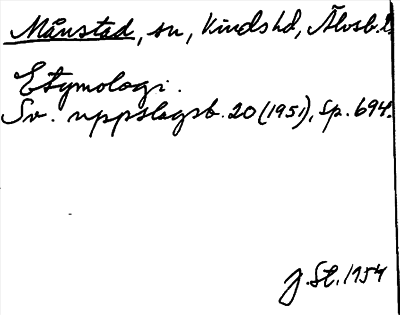 Månstad, sn, Kinds hd, Älvsb. l.
Etymologi.
Sv. uppslagsb. 20 (1951), sp. 694.
J. St. 1954